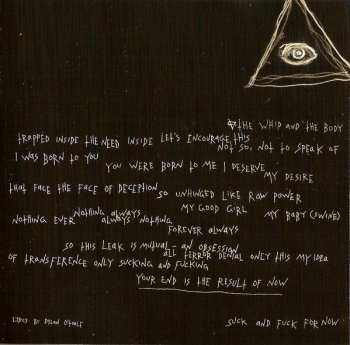 THE WHIP AND THE BODY
TRAPPED INSIDE THE NEED INSIDE LET'S ENCOURAGE THIS
NOT SO, NOT TO SPEAK OF
I WAS BORN TO YOU
YOU WERE BORN TO ME I DESERVE
MY DESIRE
THAT FACE THE FACE OF DECEPTION
SO UNHUNGED LIKE RAW POWER
MY GOOD GIRL
MY BABY (SWINE)
NOTHING ALWAYS
NOTHING EVER ALWAYS NOTHING
FOREVER ALWAYS
SO THIS LEAK IS MUTUAL - AN OBSESSION
ALL TERROR DENIAL ONLY THIS MY IDEA
OF TRANSFERENCE ONLY SUCKING AND FUCKING
YOUR END IS THE RESULT OF NOW
LYRICS BY DYLAN
SUCK AND FUCK FOR NOW